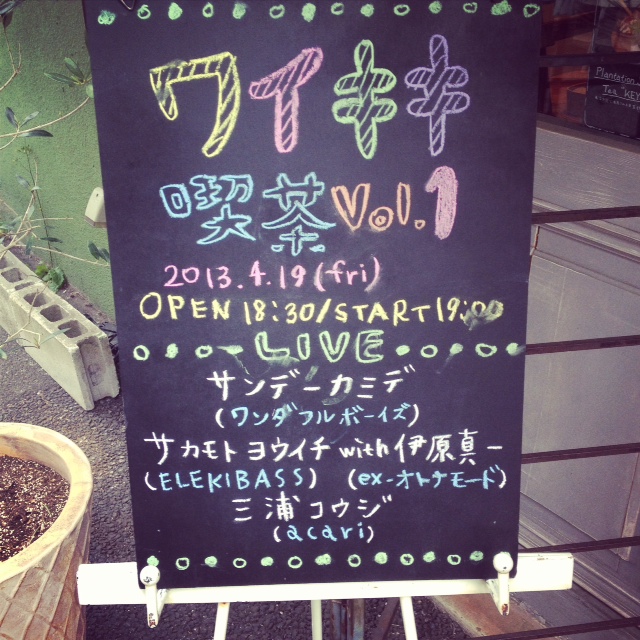 ワイキキ
喫茶 Vol.1
2013.4.19(fri)
OPEN 18:30/START 19:00
LIVE
サンデーカミデ
(ワンダフルボーイズ)
サカモトヨウイチ with 伊原真一
(ELEKIBASS) (ex-オトナモード)
三浦コウジ
(acari)
Plantation
Tea "KEY